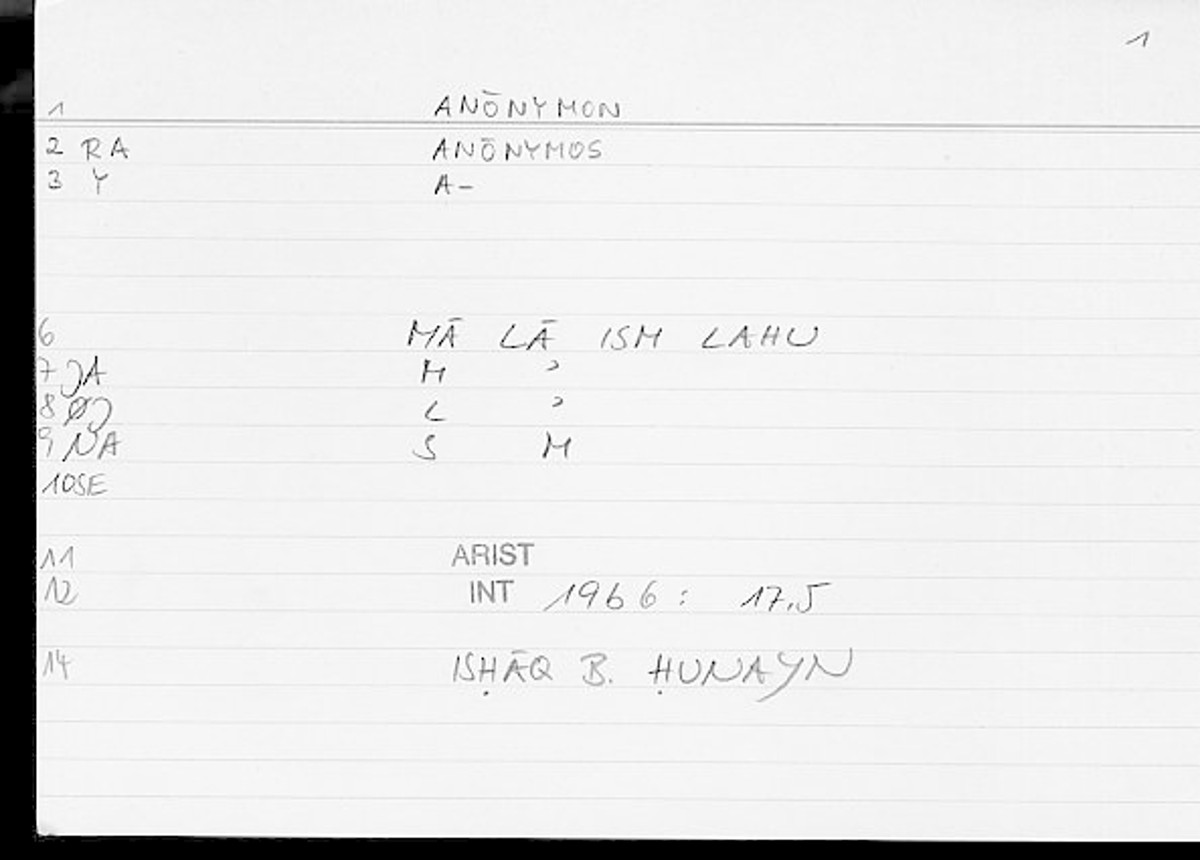 1
1 ANŌNYMON
2 RA ANŌNYMOS
3 Y A-
6 MĀ LĀ ISM LAHU
7 JA M ʾ
8 ØJ L ʾ
9 NA S M
10SE
11 ARIST
12 INT 1966: 17,5
14 ISḤĀQ B. ḤUNAYN